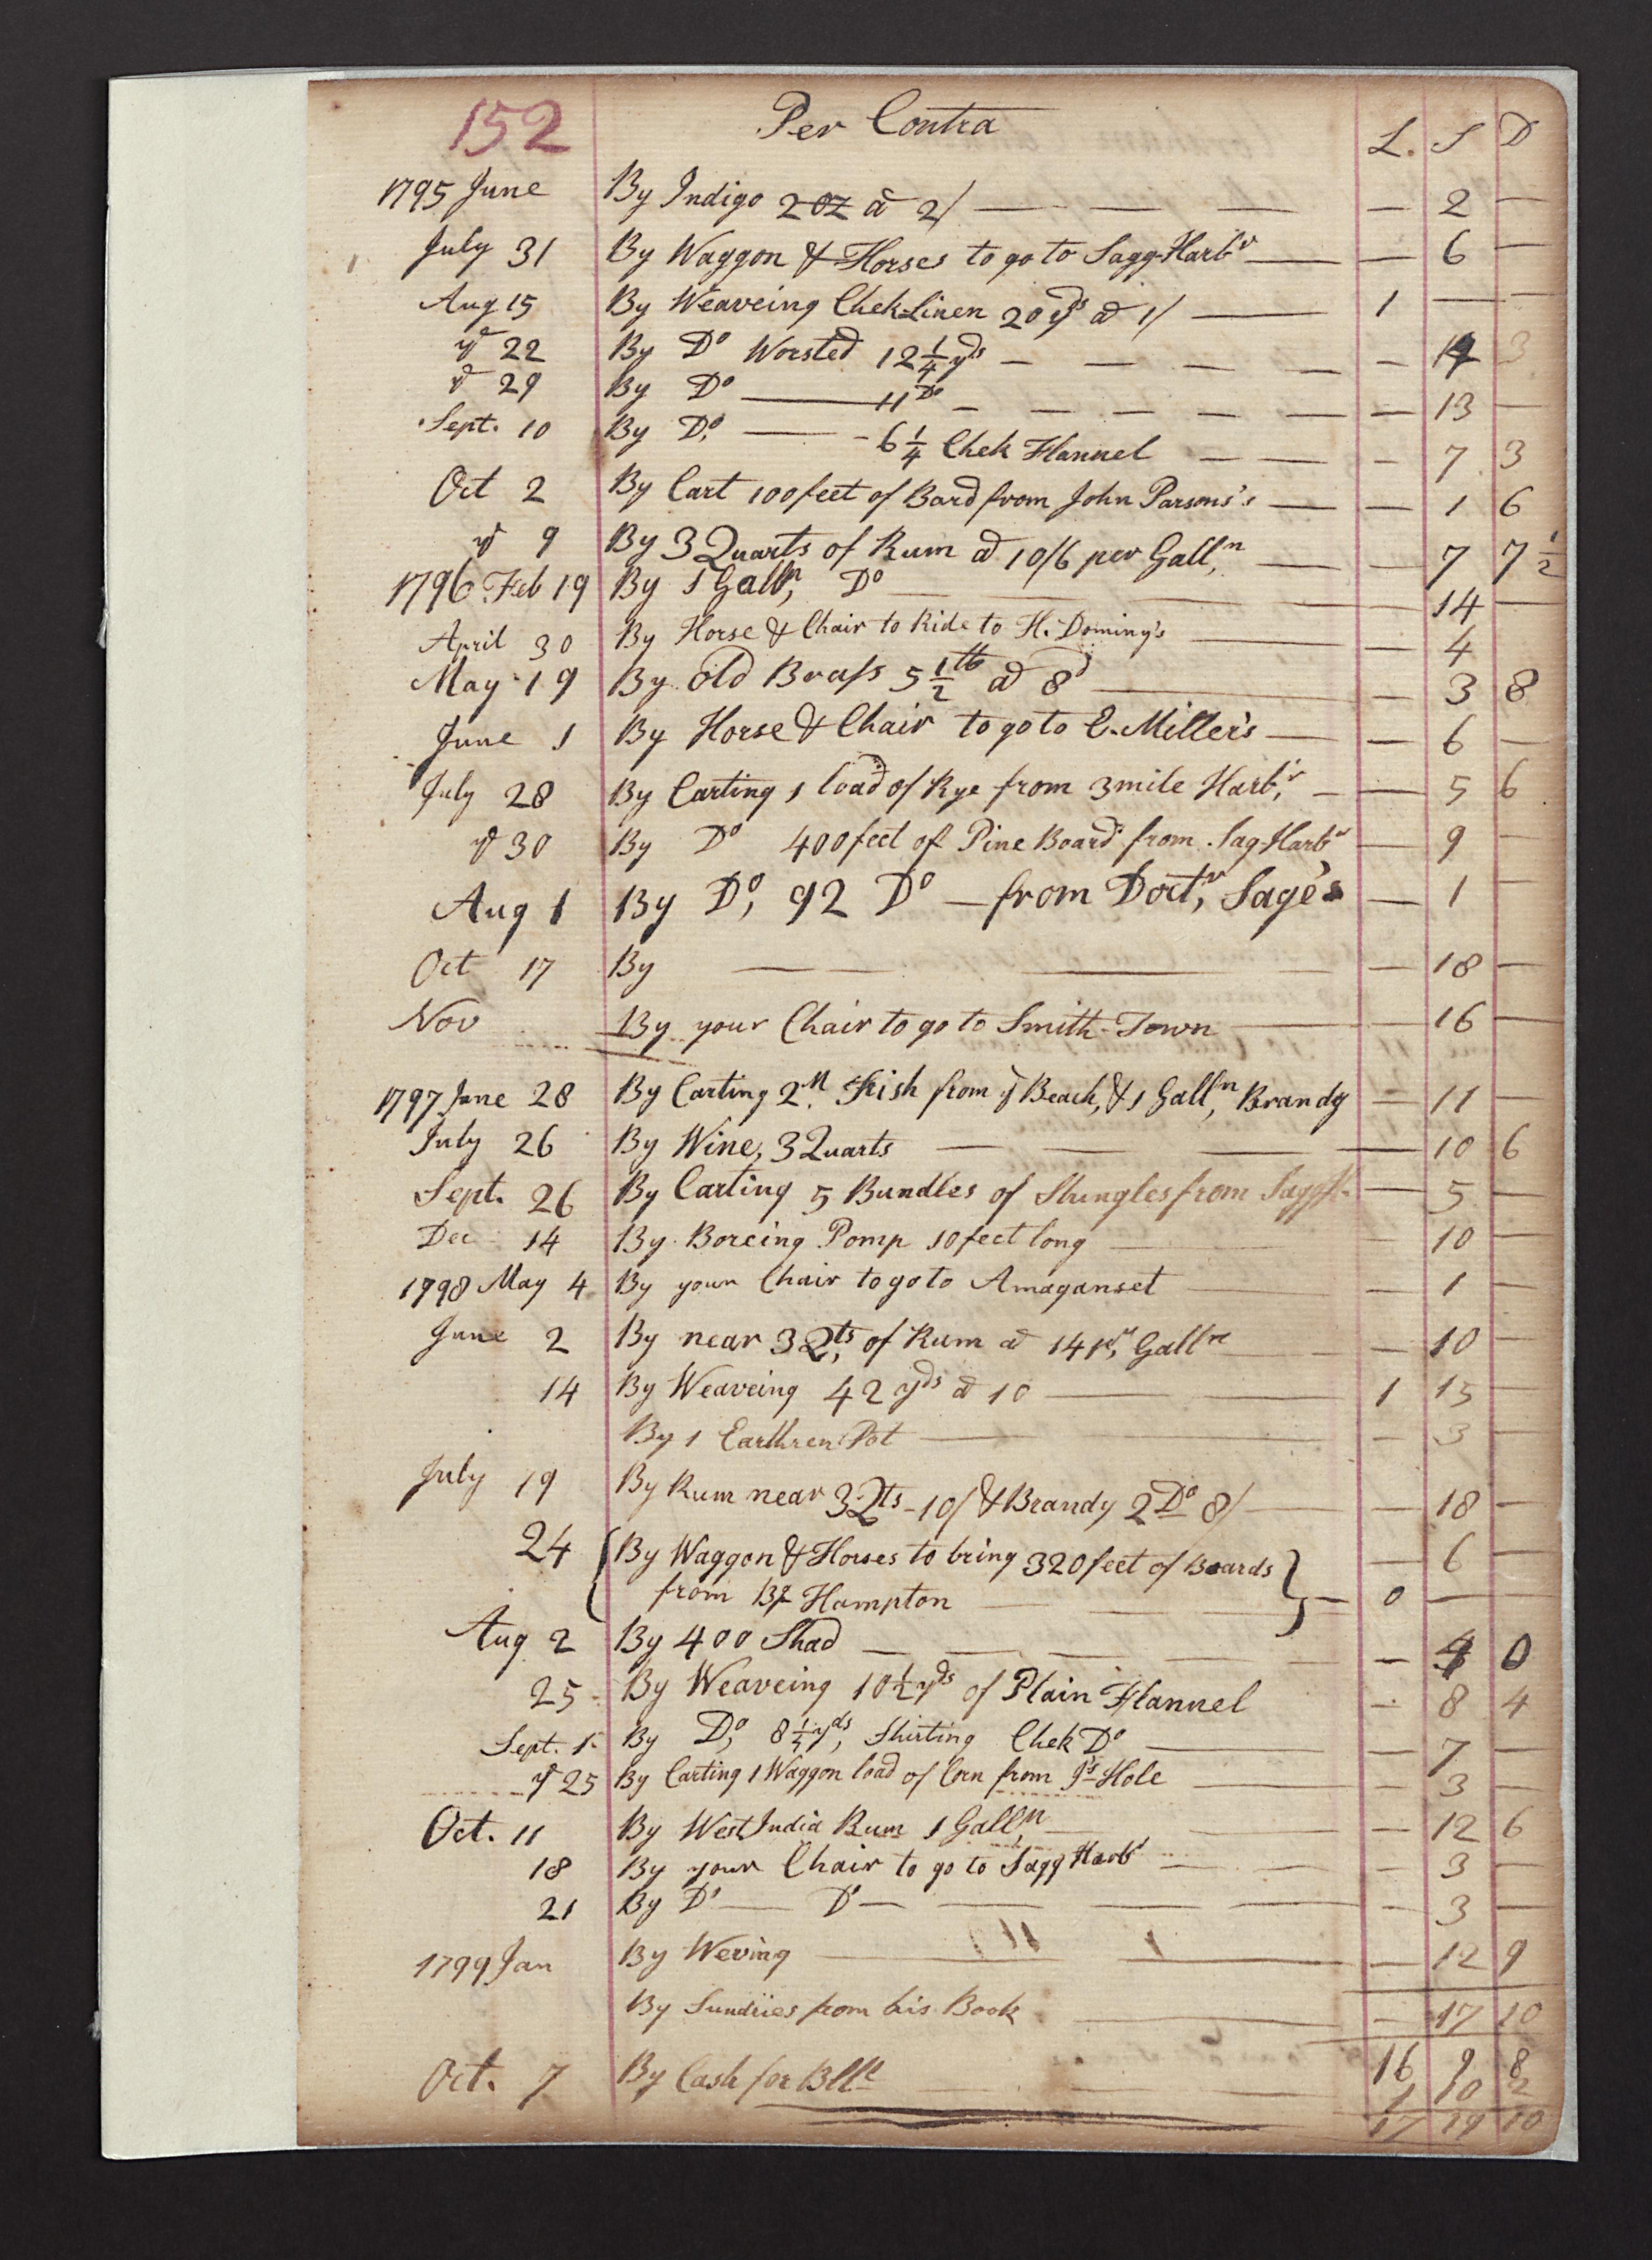 152 Per Contra L. S D
1795 June By Indigo 2 oz a 2/ — 2 —
July 31 By Waggon & Horses to go to Sagg-Harbr — 6 —
Aug 15 By Weaveing Chek-Linen 20 yds a 1/ 1 — —
22 By Do Worsted 12 1/4 yds — 3
29 By Do 11 Do — 13 —
Sept. 10 By Do, 6 1/4 Chek Flannel — 7 3
Oct 2 By Cart 100 feet of Bard from John Parsons's — 1 6
9 By 3 Quarts of Rum a 10/6 per Galln — 7 7 1/2
1796 Feb 19 By 1 Galln, Do — 14 —
April 30 By Horse & Chair to Ride to H. Dominy's — 4
May 19 By Old Brass 5 1/2 lb a 8d — 3 8
June 1 By Horse & Chair to go to E. Miller's — 6 —
July 28 By Carting 1 load of Rye from 3 mile Harbr, — 5 6
30 By Do 400 feet of Pine Board from Sag-Harbr — 9 —
Aug 1 By Do, 92 Do — from Doctr, Sage's — 1 —
Oct 17 By — 18 —
Nov By your Chair to go to Smith-Town — 16 —
1797 June 28 By Carting 2M. Fish from ye Beach, & 1 Galln, Brandy — 11 —
July 26 By Wine, 3 Quarts — 10 6
Sept. 26 By Carting 5 Bundles of Shingles from Sagg H. — 5 —
Dec 14 By Boreing Pomp 10 feet long — 10 —
1798 May 4 By your Chair to go to Amaganset — 1 —
June 2 By near 3 Qts, of Rum a 14 pr, Galln — 10 —
14 By Weaveing 42 yds a 10 1 15 —
By 1 Earthren Pot — 3 —
July 19 By Rum near 3 Qts - 10/ & Brandy 2 Do 8/ — 18 —
24 By Waggon & Horses to bring 320 feet of Boards — 6 —
from Bg Hampton — 0 —
Aug 2 By 400 Shad — 4 0
25 By Weaveing 10 1/2 yds of Plain Flannel — 8 4
Sept. 1. By Do, 8 1/2 yds, Shirting Chek Do — 7 —
25 By Carting 1 Waggon load of Corn from Hole — 3 —
Oct. 11 By West India Rum 1 Galln — 12 6
18 By your Chair to go to Sagg Harbr — 3 —
21 By Do — Do — 3 —
1799 Jan By Weving — 12 9
By Sundries from his Book — 17 10
16 9 8
Oct. 7 By Cash for Blle 1 10 2
17 19 10